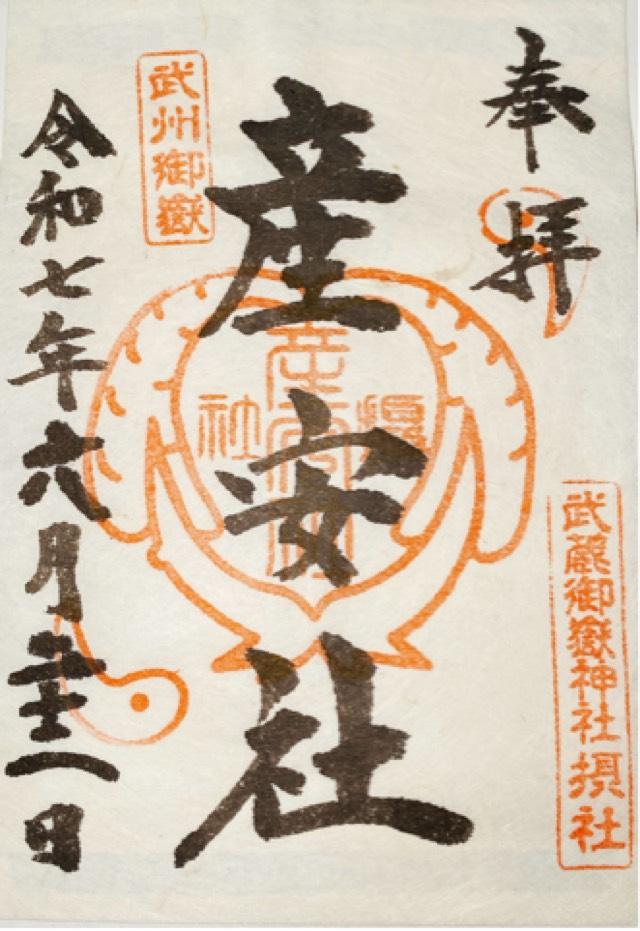 奉拝
武蔵御嶽神社摂社
産安社
武州御嶽
令和七年六月二十二日